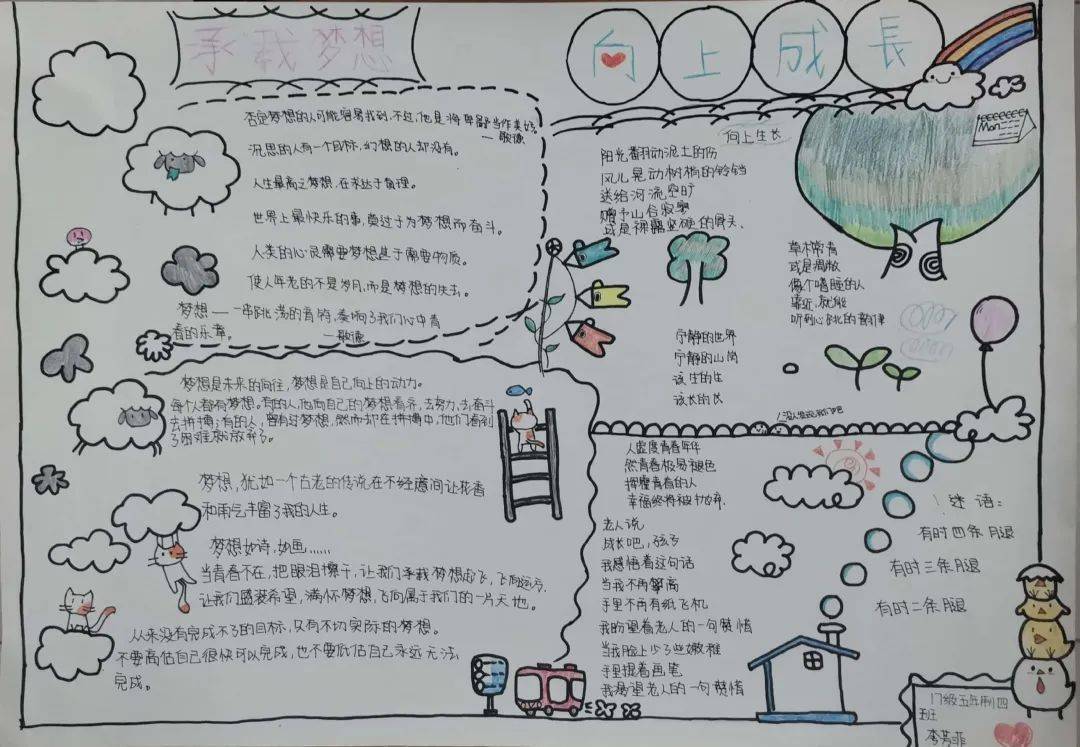 承载梦想
否定梦想的人可能容易找到,不过,他是将卑鄙当作美好。
—敬德
沉思的人有一个目标,幻想的人却没有。
人生最高之梦想,在求达于真理。
世界上最快乐的事,莫过于为梦想而奋斗。
人类的心灵需要梦想甚于需要物质。
使人年老的不是岁月,而是梦想的失去。
梦想——一串跳荡的音符,奏响了我们心中青
春的乐章。
—敬德
梦想是未来的向往,梦想是自己向上的动力。
每个人都有梦想。有的人,他向自己的梦想看齐,去努力,去奋斗
去拼搏;有的人,曾有过梦想,然而却在拼搏中,他们看到
了困难就放弃了。
梦想,犹如一个古老的传说在不经意间让花香
和雨气丰富了我的人生。
梦想如诗,如画......
当青春不在,把眼泪擦干,让我们承载梦想起飞,飞向远方,
让我们盛装希望,满怀梦想,飞向属于我们的一片天地。
从来没有完成不了的目标,只有不切实际的梦想。
不要高估自己很快可以完成,也不要低估自己永远无法
完成。
向上成長
向上生长
阳光翻动泥土的伤
风儿晃动树梢的铃铛
送给河流空旷
赠予山谷寂寞
或是裸露坚硬的骨头、
草木常青
或是凋散
像个嗜睡的人
靠近,就能
听到心跳的韵律
Mon
宁静的世界
宁静的山岗
该生的生
该长的长
人虚度青春年华
然青春极易褪色
挥霍青春的人
幸福终将被抛弃.
老人说
成长吧,孩子
我感悟着这句话
当我不再攀高
手里不再有纸飞机
我盼望着老人的一句赞惜
当我脸上少了些嫩稚
手里提着画笔
我渴望老人的一句赞惜
!谜语:
有时四条腿
有时三条腿
有时二条腿
李芳菲